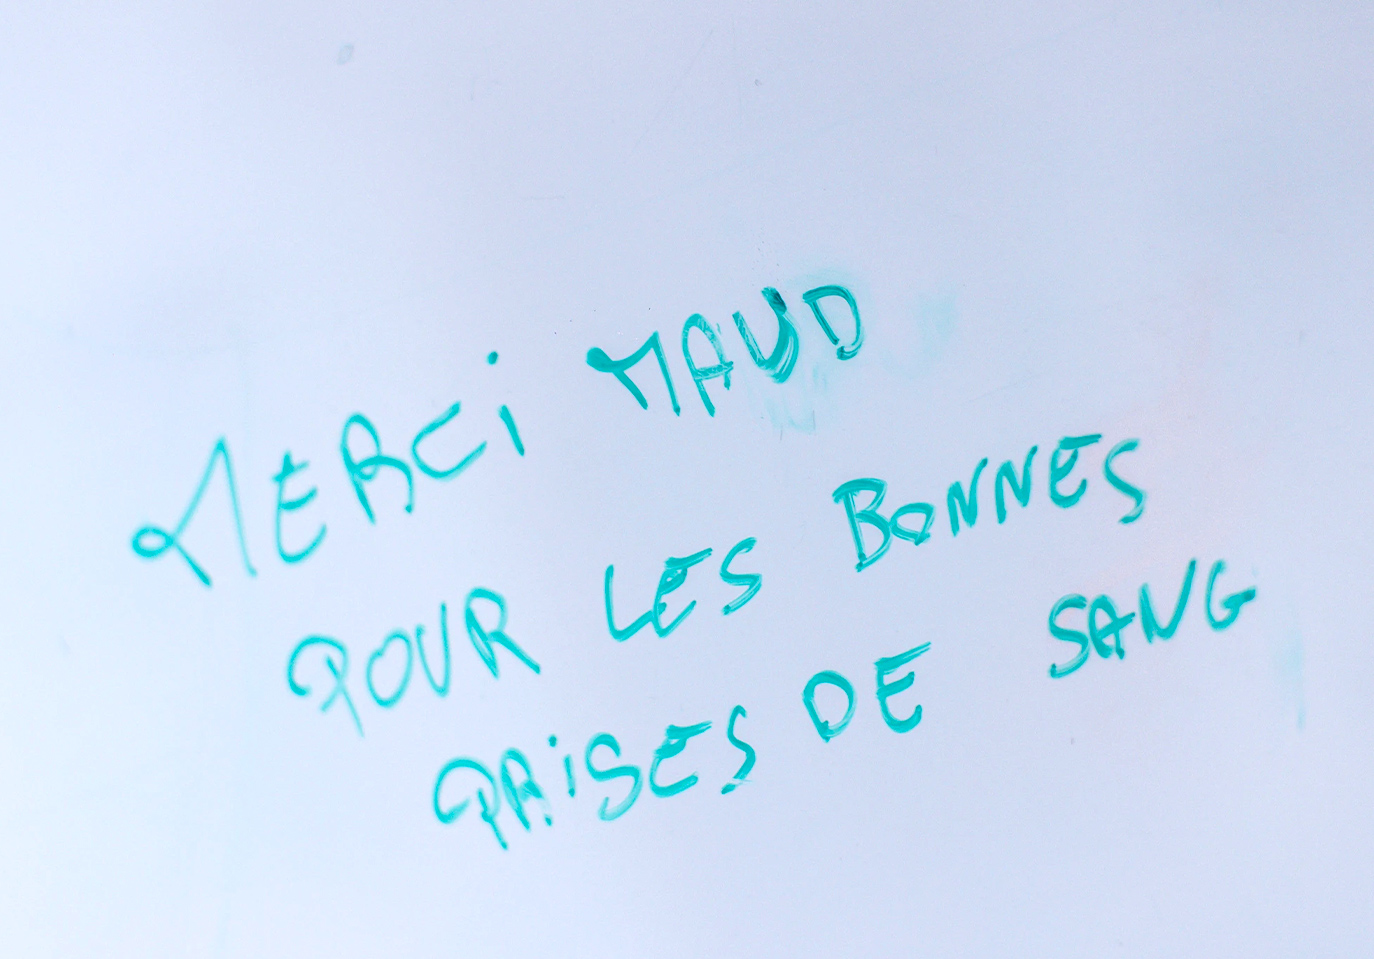 MERCi MAUD
POUR LES BONNES
PRiSES DE SANG